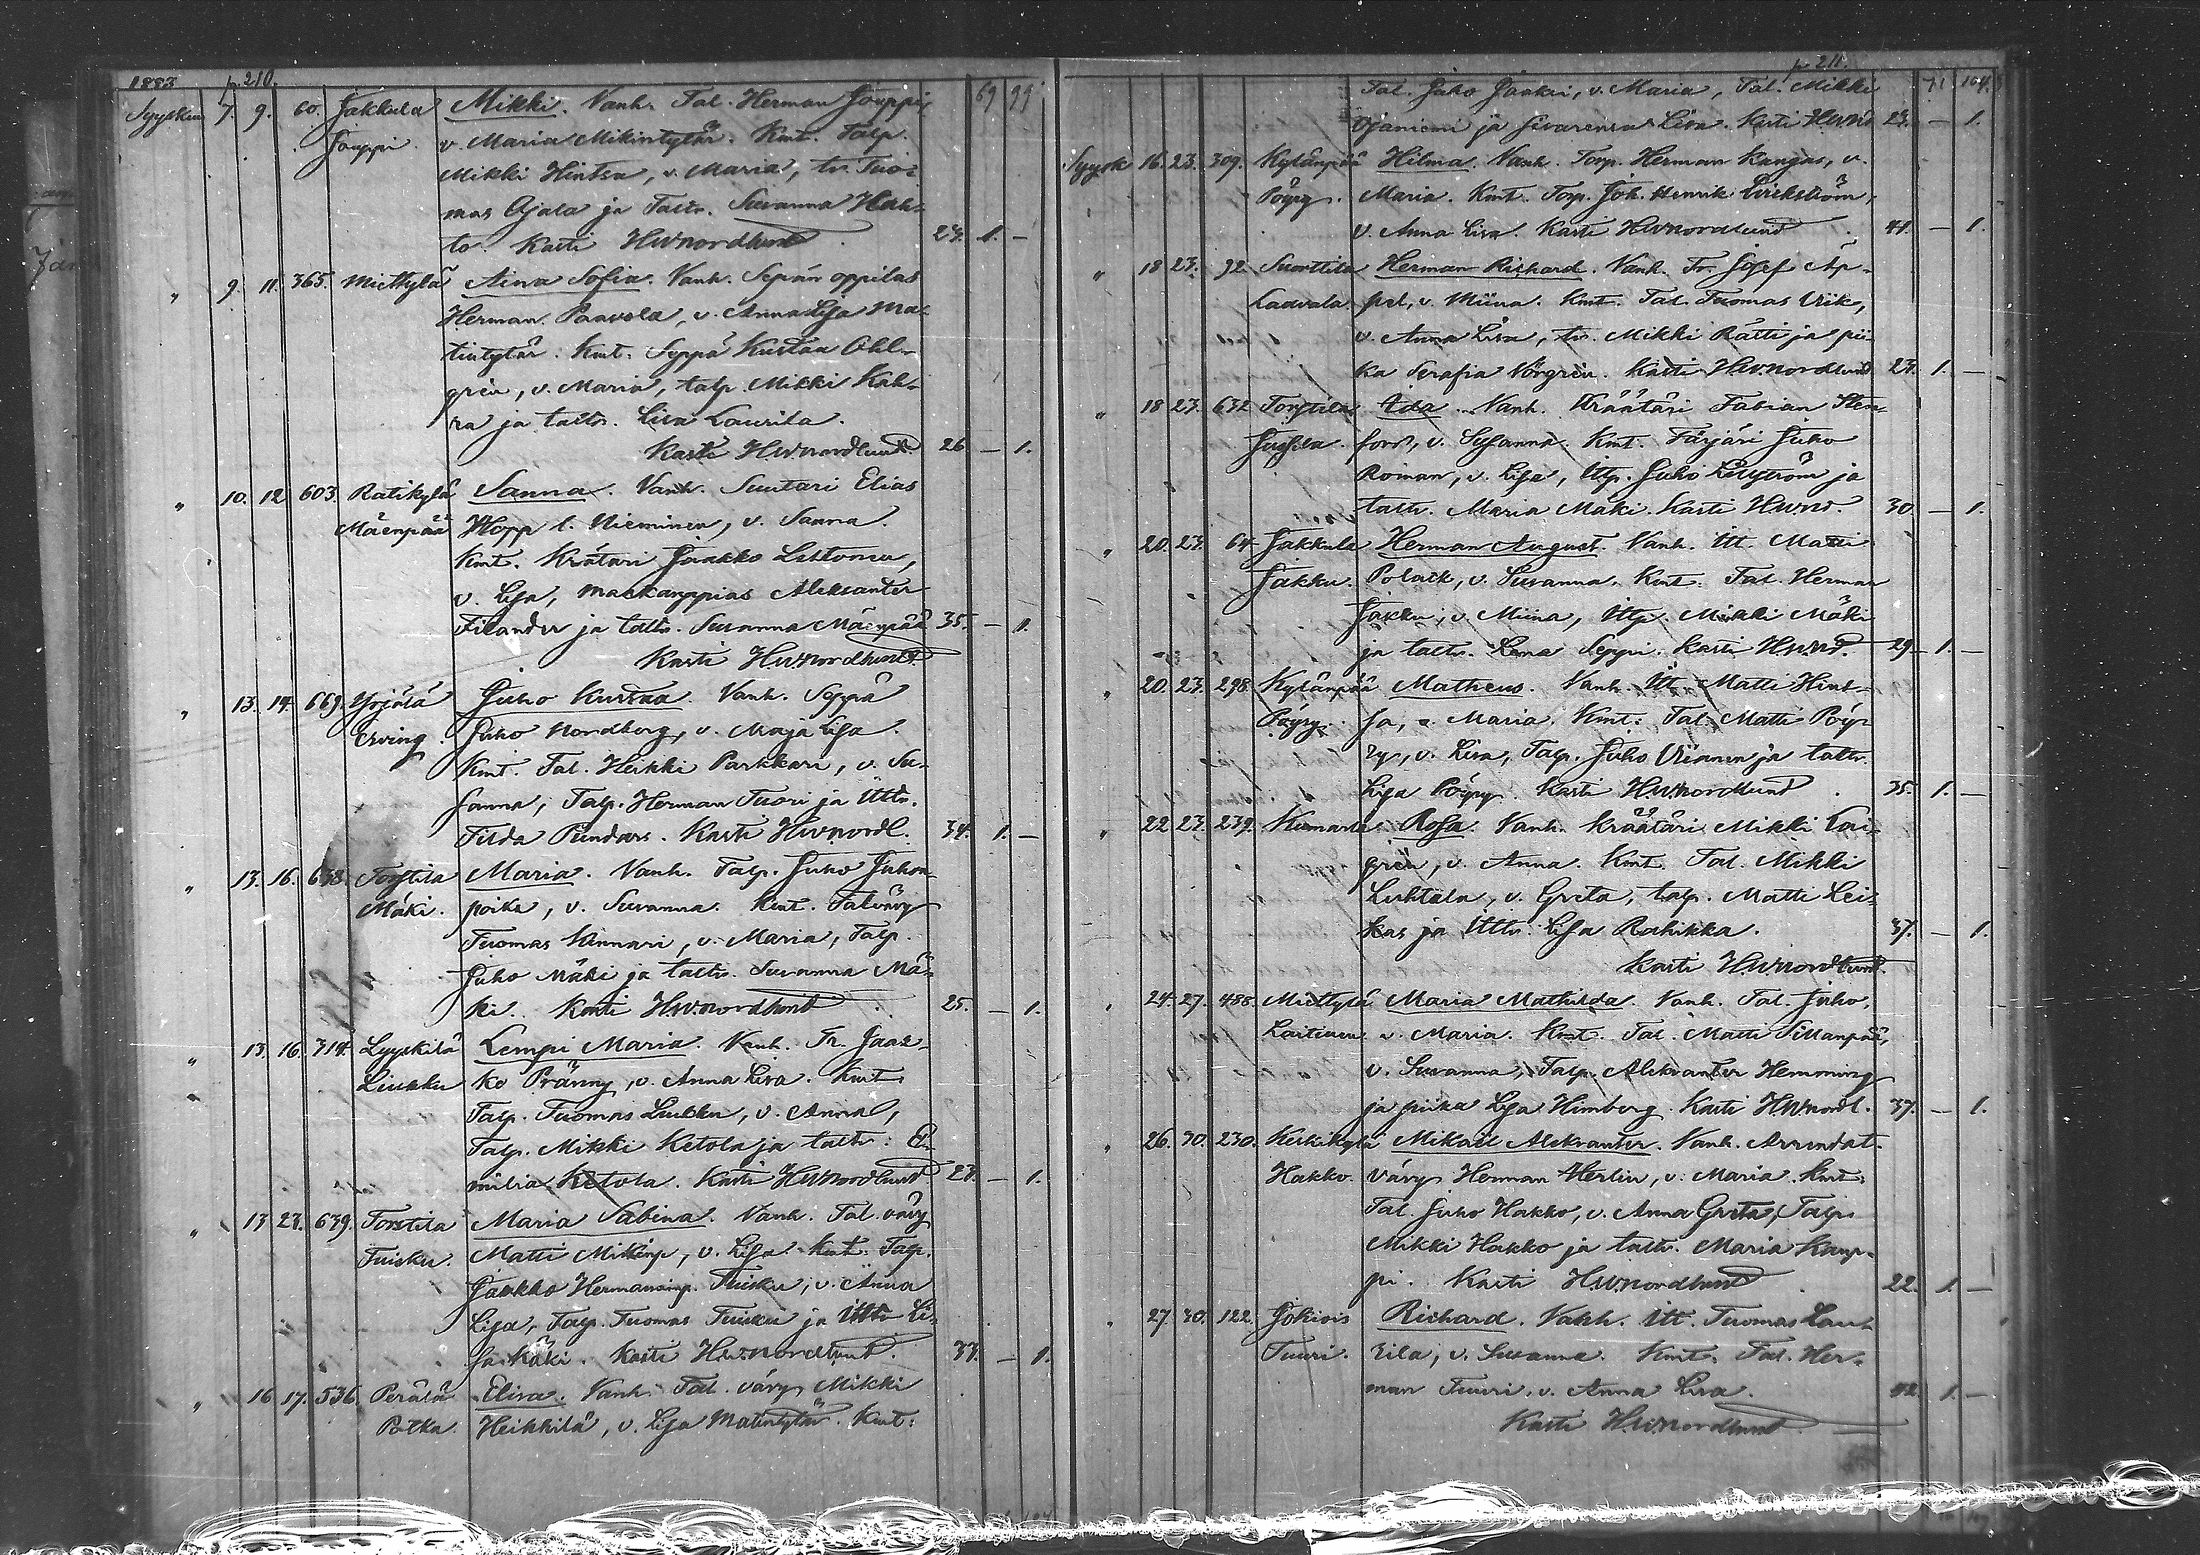 1883 p. 210. 69 99
Syyskuu 7. 9. 60. Jakkula Mikki. Vanh. Tal. Herman Jouppi,
Jouppi v. Maria Mikintytär. Kmt. Talp.
Mikki Hintsa, v. Maria, tr. Tuo-
mas Ojala ja Taltr. Susanna Hah-
to. Kasti HWNordlund. 24. 1. —
" 9. 11. 365. Miettylä Aina Sofia. Vanh. Sepän oppilas
Herman Paavola, v. Anna Lisa Ma-
tintytär. Kmt. Seppä Kustaa Ohl-
grén, v. Maria, talp. Mikki Kah-
ra ja taltr. Lisa Laurila.
Kasti HWNordlund. 26 — 1.
" 10. 12 603. Ratikylä Sanna. Vanh. Suutari Elias
Mäenpää Hopp l. Nieminen, v. Sanna.
Kmt. Krätäri Jaakko Lehtonen,
v. Lisa, maakauppias Aleksanter
Filander ja taltr. Susanna Mäenpää 35. — 1.
Kasti HWNordlund.
" 13. 14. 669. Yrjälä Juho Kustaa. Vanh. Seppä
Erving. Juho Nordberg, v. Maja Lisa.
Kmt. Tal. Heikki Parkkari, v. Su-
sanna, Talp. Herman Tuori ja Ittr.
Tilda Pundars. Kasti HWNordl. 34. 1. —
" 13. 16. 638. Torstila Maria. Vanh. Talp. Juho Juhon-
Mäki. poika, v. Susanna. Kmt. Talvävy
Tuomas Kinnari, v. Maria, Talp.
Juho Mäki ja taltr. Susanna Mä-
ki. Kasti HWNordlund 25. — 1.
" 13. 16. 314. Lyyskilä Lempi Maria. Vanh. Tr. Jaak-
Liukku ko Pränny, v. Anna Lisa. Kmt.
Talp. Tuomas Liukku, v. Anna,
Talp. Mikki Ketola ja taltr. E-
milia Ketola. Kasti HWNordlund 23. — 1.
" 13 23. 639. Torstila Maria Sabina. Vanh. Tal. vävy
Tuisku. Matti Mikinp, v. Lisa. Kmt. Talp.
Jaakko Hermaninp. Tuisku, v. Anna
Lisa, Talp. Tuomas Tuisku ja Ittr. Li-
sa Mäki. Kasti HWNordlund. 33. — 1.
" 16 17. 536. Perälä Elisa. Vanh. Tal. vävy Mikki
Potka. Heikkilä, v. Lisa Matintytär. Kmt:
p. 211. 71 104.
Tal. Juho Jaakri, v. Maria, Tal. Mikki
Ojaniemi ja sisarensa Lisa. Kasti HWNd 23. — 1.
Syysk 16. 23. 309. Kylänpää Hilma. Vanh. Torp. Herman Kangas, v.
Pöyry. Maria. Kmt. Torp. Joh. Henrik Wickström,
v. Anna Lisa. Kasti HWNordlund. 41. — 1.
" 18 23. 92 Suorttila Herman Richard. Vanh. Tr. Josef Äp-
Ladvala. pel, v. Miina. Kmt. Tal. Tuomas Wik,
v. Anna Lisa, tr. Mikki Rätti ja pii-
ka Serafia Norgrén. Kasti HWNordlund 27. 1. —
" 18 23. 632 Torstila Ida. Vanh. Kräätäri Fabian Sten-
Jussila. fors, v. Susanna. Kmt. Färjäri Juho
Roiman, v. Lisa, Ittp. Juho Liljström ja
taltr. Maria Mäki. Kasti HWNd. 30 — 1.
" 20. 23. 64 Jakkula Herman August. Vanh. Itt. Matti
Jakku. Polack, v. Susanna. Kmt. Tal. Herman
Jakku, v. Miina, Ittp. Mikki Mäki
ja taltr. Lena Seppi. Kasti HWNd. 29. 1. —
" 20. 23. 298 Kylänpää Matheus. Vanh. Itt. Matti Hint-
Pöyry. sa, v. Maria. Kmt: Tal. Matti Pöy-
ry, v. Lisa, Talp. Juho Viianen ja taltr.
Lisa Pöyry. Kasti HWNordlund. 35. 1. —
" 22 23. 239. Kumarla Rosa. Vanh. Kräätäri Mikki Lai-
grén, v. Anna. Kmt. Tal. Mikki
Luhtala, v. Greta, talp. Matti Lei-
kas ja Ittr. Lisa Rahikka. 37. — 1.
Kasti HWNordlund.
" 24. 27. 488. Miettylä Maria Mathilda. Vanh. Tal. Juho
Laitinen v. Maria. Kmt. Tal. Matti Sillanpää,
v. Susanna, Talp. Aleksanter Hemming
ja piika Lisa Himberg. Kasti HWNordl. 37. — 1.
" 26. 30. 230. Keskikylä Mikael Aleksanter. Vanh. Arrendat.
Hakko. vävy Herman Herlin, v. Maria. Kmt:
Tal. Juho Hakko, v. Anna Greta, Talp.
Mikki Hakko ja taltr. Maria Kaup-
pi. Kasti HWNordlund. 22. 1. —
" 27. 30. 122. Jokivis Richard. Vanh. Itt. Tuomas Lau-
Tuuri. rila, v. Susanna. Kmt. Tal. Her-
man Tuuri, v. Anna Lisa. 42. 1. —
Kasti HWNordlund